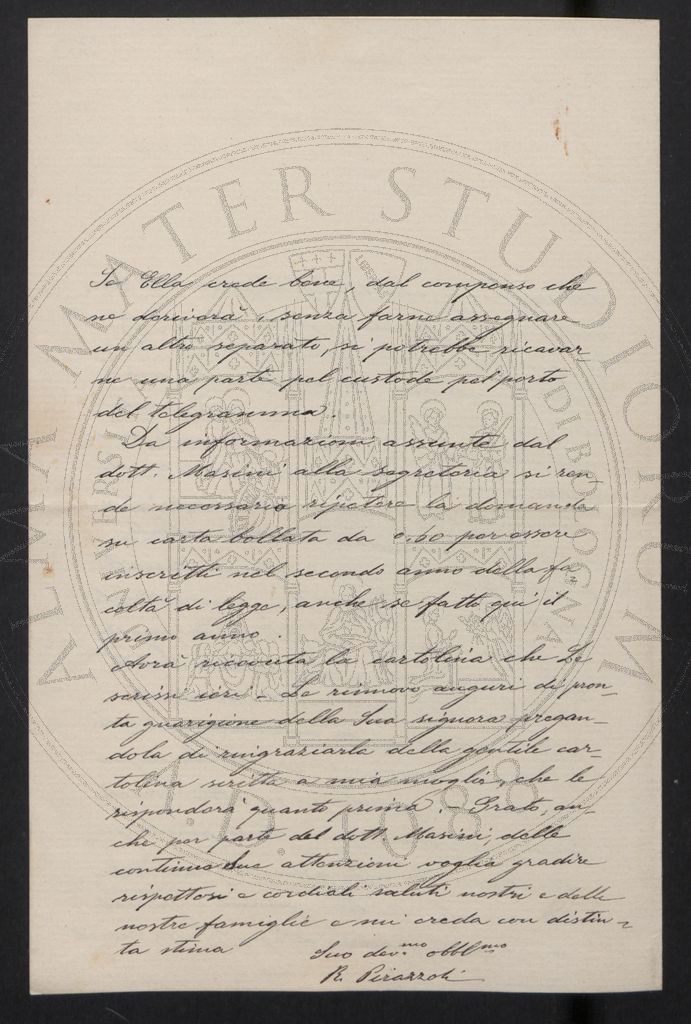 Se Ella crede bene, dal compenso che
ne deriverà, senza farne assegnare
un altro separato, si potrebbe ricavar-
ne una parte pel custode pel porto
del telegramma.
Da informazioni assunte dal
dott. Masini alla segreteria si ren-
de necessario ripetere la domanda
su carta bollata da 0.60 per essere
inscritti nel secondo anno della fa-
coltà di legge, anche se fatto qui il
primo anno.
Avrà ricevuta la cartolina che Le
scrissi ieri - Le rinnovo auguri di pron-
ta guarigione della Sua signora pregan-
dola di ringraziarla della gentile car-
tolina scritta a mia moglie, che le
risponderà quanto prima. - Grato, an-
che per parte del dott. Masini, delle
continue Sue attenzioni voglia gradire
rispettosi e cordiali saluti nostri e delle
nostre famiglie e mi creda con distin-
ta stima
Suo dev.mo obbl.mo
R. Pirazzoli
ALMA MATER STUDIORUM
UNIVERSITÀ DI BOLOGNA
A.D. 1088